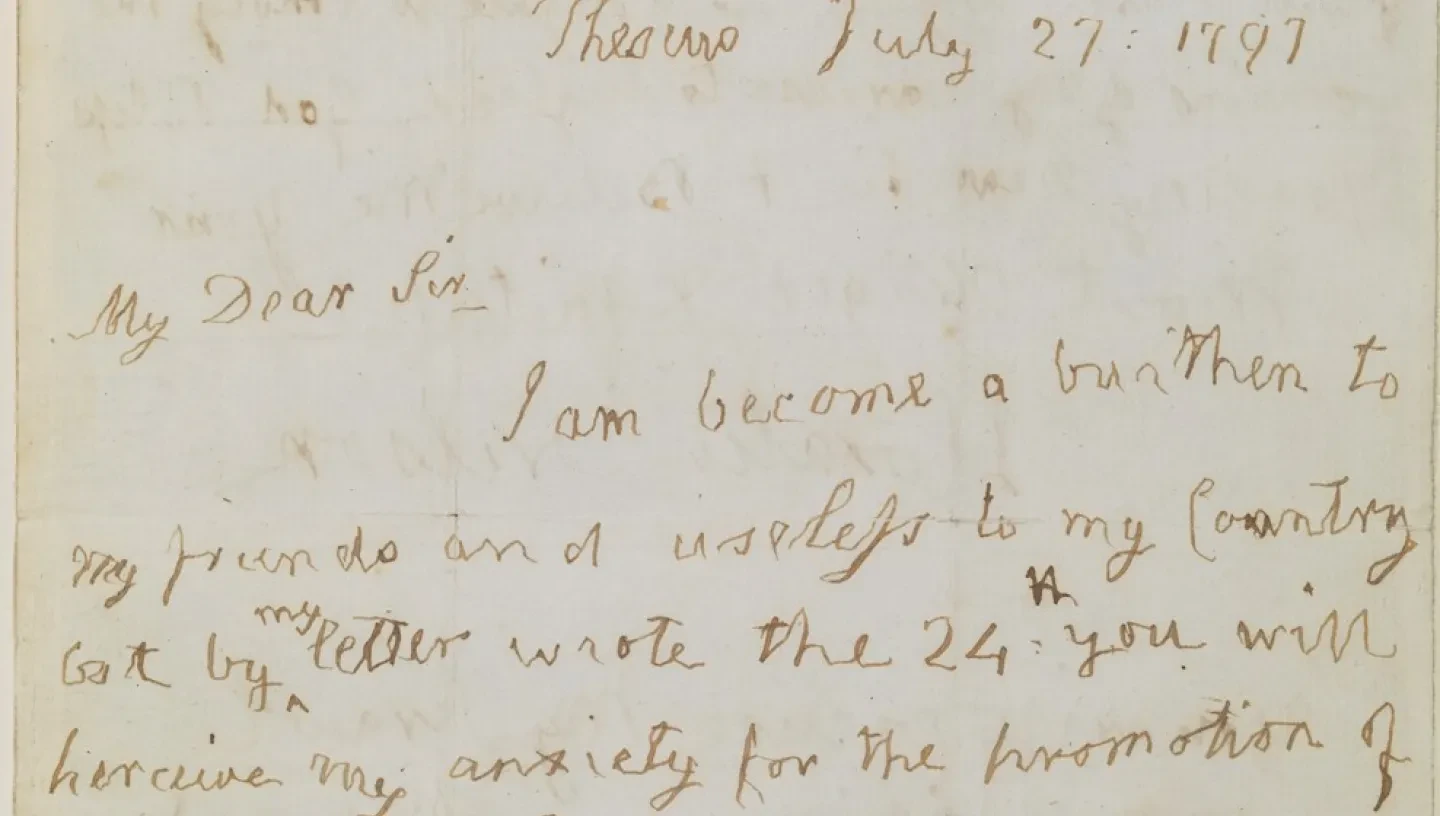 Theseus July 27: 1797
My Dear Sir
I am become a burthen to
my friends and useless to my Country
but by my letter wrote the 24th: you will
perceive my anxiety for the promotion of